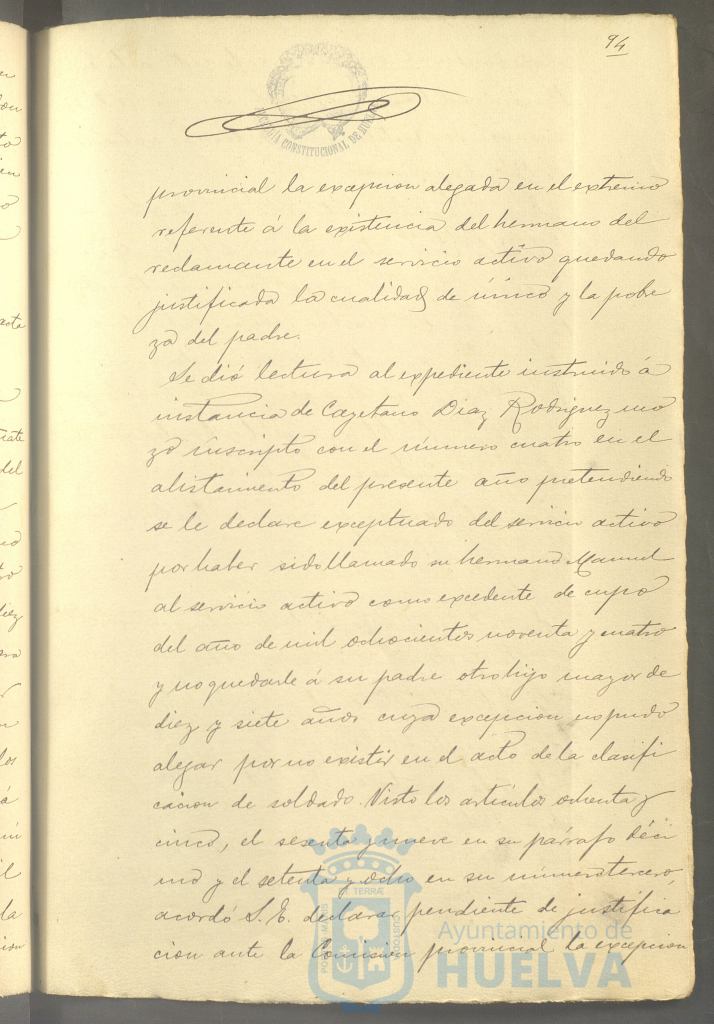 94
ALCALDIA CONSTITUCIONAL DE HUELVA
provincial la excepcion alegada en el extremo
referente á la existencia del hermano del
reclamante en el servicio activo quedando
justificada la cualidad de único y la pobre
za del padre.
Se dió lectura al expediente instruido á
instancia de Cayetano Diaz Rodriguez mo
zo inscripto con el número cuatro en el
alistamiento del presente año pretendiendo
se le declare exceptuado del servicio activo
por haber sido llamado su hermano Manuel
al servicio activo como excedente de cupo
del año de mil ochocientos noventa y cuatro
y no quedarle á su padre otro hijo mayor de
diez y siete años cuya excepcion no pudo
alegar por no existir en el acto de la clasifi
cacion de soldado. Visto los artículos ochenta y
cinco, el sesenta y nueve en su párrafo déci
mo y el setenta y ocho en su número tercero,
acordó S. E. declarar pendiente de justifica
cion ante la Comision provincial la excepcion
PORTUS MARIS ET TERRÆ CUSTODIA
Ayuntamiento de
HUELVA